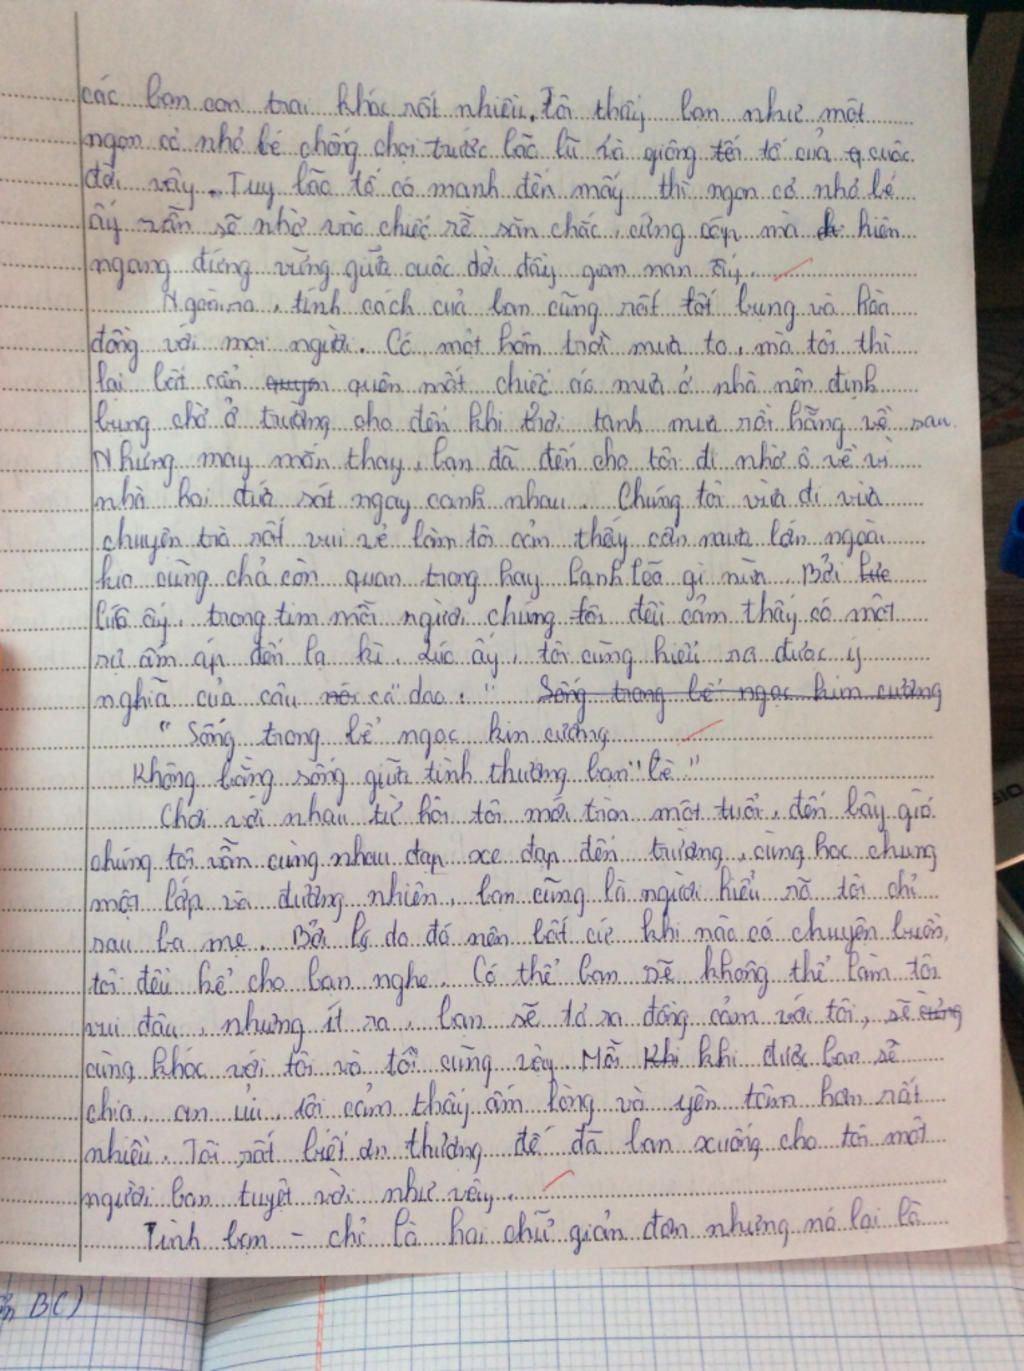 các bạn con trai khác rất nhiều. Tôi thấy bạn như một
ngọn cỏ nhỏ bé chống chọi trước bão lũ và giông tố của cuộc
đời vậy. Tuy bão tố có mạnh đến mấy thì ngọn cỏ nhỏ bé
ấy vẫn sẽ nhờ vào chiếc rễ săn chắc, cứng cáp mà hiên
ngang đứng vững giữa cuộc đời đầy gian nan ấy.
Ngoài ra, tính cách của bạn cũng rất tốt bụng và hòa
đồng với mọi người. Có một hôm trời mưa to, mà tôi thì
lại bất cẩn quên mất chiếc áo mưa ở nhà nên định
bụng chờ ở trường cho đến khi trời tạnh mưa rồi hẵng về sau.
Nhưng may mắn thay, bạn đã đến cho tôi đi nhờ ô về vì
nhà hai đứa sát ngay cạnh nhau. Chúng tôi vừa đi vừa
chuyện trò rất vui vẻ làm tôi cảm thấy cơn mưa lớn ngoài
kia cũng chả còn quan trọng hay lạnh lẽo gì nữa. Bởi
lúc ấy, trong tim mỗi người chúng tôi đều cảm thấy có một
sự ấm áp đến lạ kì. Lúc ấy, tôi cũng hiểu ra được ý
nghĩa của câu ca dao: " Sống trong bể ngọc kim cương
" Sống trong bể ngọc kin cương
Không bằng sống giữa tình thương bạn" bè."
Chơi với nhau từ hồi tôi mới tròn một tuổi, đến bây giờ
chúng tôi vẫn cùng nhau đạp xe đạp đến trường, cùng học chung
một lớp và đương nhiên, bạn cũng là người hiểu rõ tôi chỉ
sau ba mẹ. Bởi lý do đó nên bất cứ khi nào có chuyện buồn,
tôi đều kể cho bạn nghe. Có thể bạn sẽ không thể làm tôi
vui đâu, nhưng ít ra, bạn sẽ tỏ ra đồng cảm với tôi, sẽ
cùng khóc với tôi và tôi cũng vậy. Mỗi khi được bạn sẻ
chia, an ủi, tôi cảm thấy ấm lòng và yên tâm hơn rất
nhiều. Tôi rất biết ơn thượng đế đã ban xuống cho tôi một
người bạn tuyệt vời như vậy.
Tình bạn – chỉ là hai chữ giản đơn nhưng nó lại là
BC)